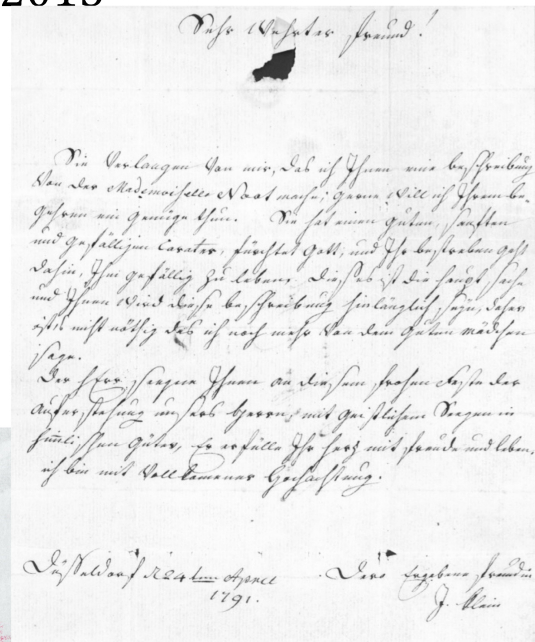 2013
Sehr Wehrter Freund!
Sie Verlangen Von mir, das ich Ihnen eine beschreibung
Von der Mademoiselle Noot mache, gerne Will ich Ihrem be-
gehren ein genüge thun. Sie hat einen guten, sanften
und gefälligen Carater, fürchtet Gott, und Ihr bestreben geht
dahin, Ihm gefällig zu leben. Dieses ist die haupt sache
und Ihnen Wird diese beschreibung hinlänglich seyn, daher
ist es nicht nöthig das ich noch mehr Von dem guten Mädchen
sage.
Der Herr seegne Ihnen an diesem frohen Feste der
Auferstehung unsers Herrn, mit geistlichem Seegen in
himlischen Güter, Er erfülle Ihr herz mit freude und leben,
ich bin mit Vollkomener Hochachtung.
Düsseldorf d 24ten Aprill
1791.
Dero Ergebene freundin
J. Klein